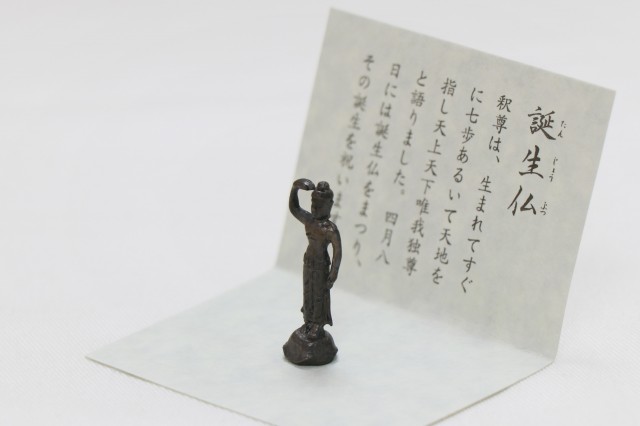 誕生仏
たんじょうぶつ
釈尊は、生まれてすぐ
に七歩あるいて天地を
指し天上天下唯我独尊
と語りました。四月八
日には誕生仏をまつり、
その誕生を祝います